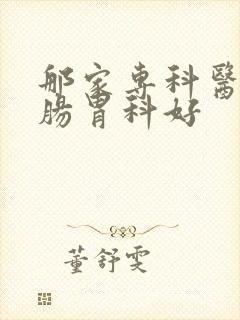 那家專科醫
腸胃科好
董舒雯